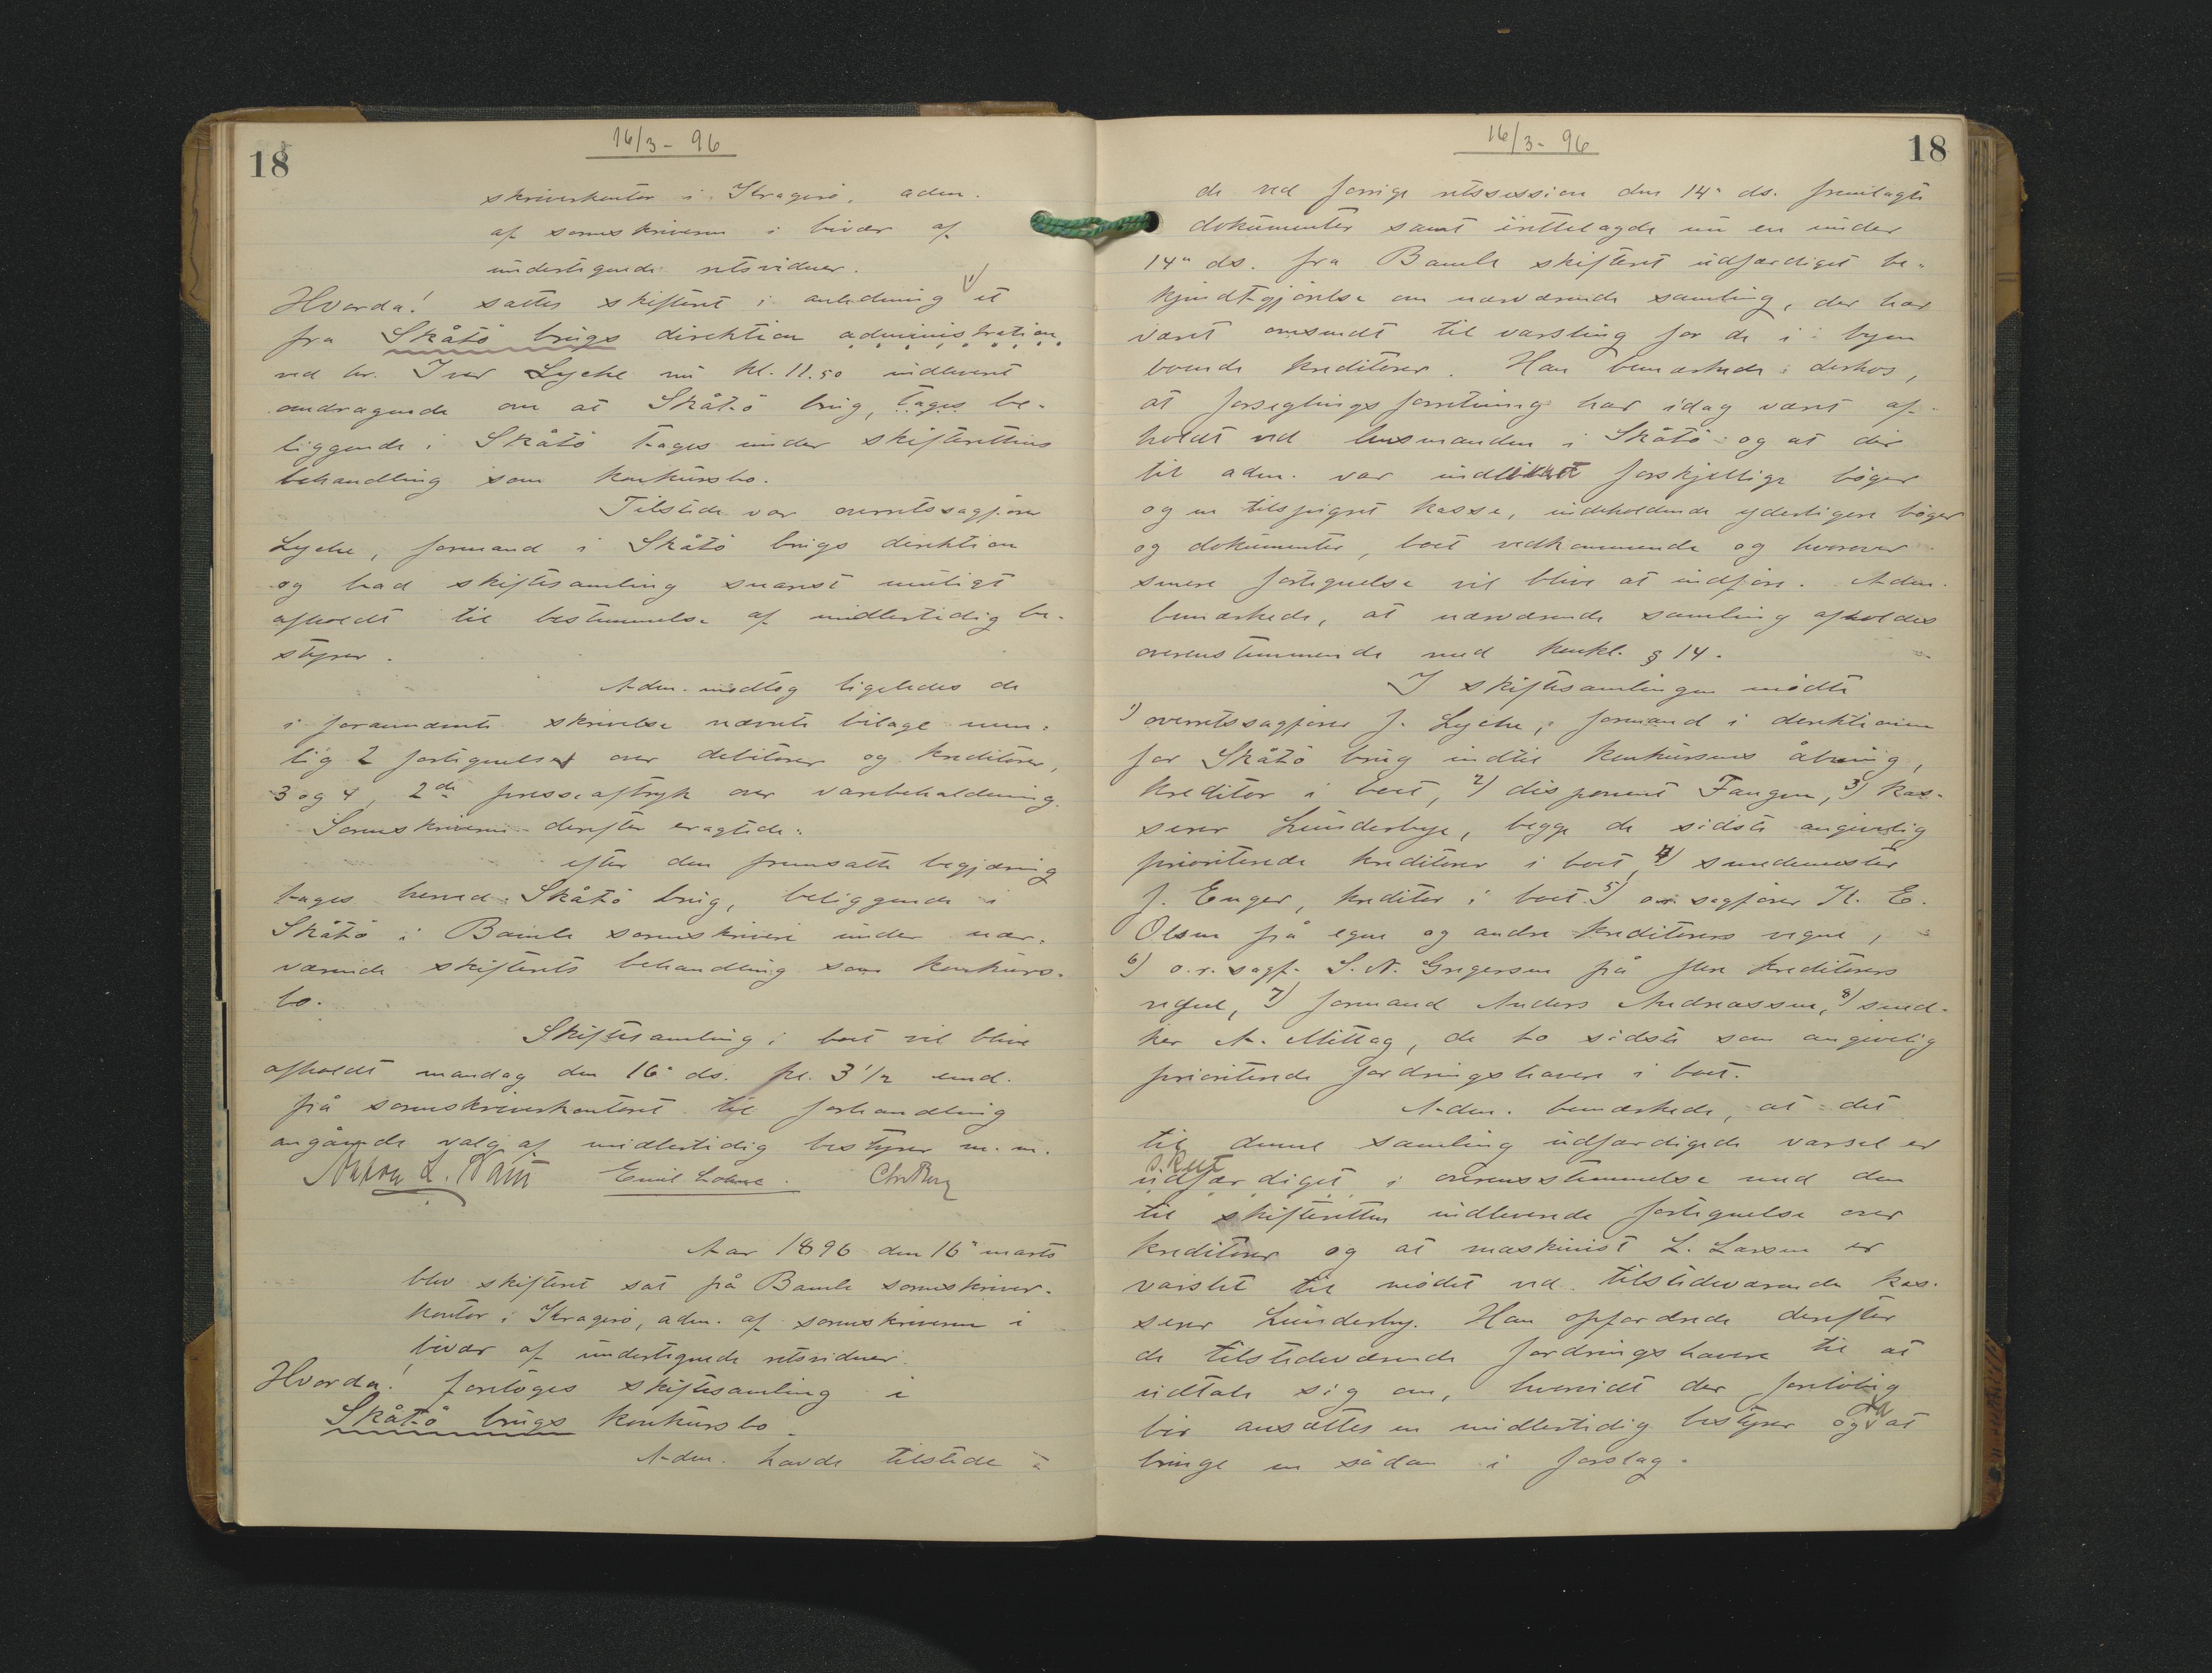 18
16/3 - 96
skriverkontor i Kragerø, adm.
af sorenskriveren i bivær af
undertegnede retsvidner.
Hvorda! sattes skifteret i anledning et
fra Skåtö brugs direktion administration
ved hr. Iver Lyche nu kl. 11.50 indleveret
andragende om at Skåtö brug, tages be-
liggende i Skåtö tages under skifterettens
behandling som konkursbo.
Tilstede var overretssagfører
Lyche, formand i Skåtö brugs direktion
og bad skiftesamling snarest muligt
afholdt til bestemmelse af midlertidig be-
styrer.
Adm. modtog ligeledes de
i forannævnte skrivelse nævnte bilage nem-
lig 2 fortegnelser over debitorer og kreditorer,
3 og 4, 2de presseaftryk over varebeholdning.
Sorenskriveren derefter eragtede:
efter den fremsatte begjæring
tages herved Skåtö brug, beliggende i
Skåtö i Bamle sorenskriveri under nær-
værende skifterets behandling som konkurs-
bo.
Skiftesamling i boet vil blive
afholdt mandag den 16de ds. kl. 3 1/2 emd.
på sorenskriverkontoret til forhandling
angående valg af midlertidig bestyrer m.m.
Emil Lohne. Chr Berg
Aar 1896 den 16de marts
blev skifteret sat på Bamle sorenskriver-
kontor i Kragerø, adm. af sorenskriveren i
bivær af undertegnede retsvidner.
Hvorda! foretoges skiftesamling i
Skåtö brugs konkursbo.
Adm. havde tilstede
16/3 - 96
18
de ved forrige retssession den 14de ds. fremlagte
dokumenter samt irettelagde nu en under
14de ds. fra Bamle skifteret udfærdiget be-
kjendtgjørelse om nærværende samling, der har
været omsendt til varsling for de i byen
boende kreditorer. Han bemærkede derhos,
at forseglingsforretning har idag været af-
holdt ved lensmanden i Skåtö og at der
til adm. var indleveret forskjellige bøger
og en tilspigret kasse, indeholdende yderligere bøger
og dokumenter, boet vedkommende og hvorover
senere fortegnelse vil blive at indføre. Adm.
bemærkede, at nærværende samling afholdes
overensstemmende med konkl. § 14.
I skiftesamlingen mødte
1) overretssagfører J. Lyche, formand i direktionen
for Skåtö brug indtil konkursens åbning,
kreditor i boet, 2) disponent Fangen, 3) kas-
serer Lunderbye, begge de sidste angivelig
prioriterede kreditorer i boet, 4) smedemester
J. Enger, kreditor i boet. 5) o.r. sagfører K. E.
Olsen på egne og andre kreditorers vegne,
6) o.r. sagf. S. N. Gregersen på flere kreditorers
vegne, 7) formand Anders Andreassen, 8) sned-
ker A. Mittag, de to sidste som angivelig
prioriterede fordringshavere i boet.
Adm. bemærkede, at det
til denne samling udfærdigede varsel er
sket
udfærdiget i overensstemmelse med den
til skifteretten indleverede fortegnelse over
kreditorer og at maskinist L. Larsen er
varslet til mødet ved tilstedeværende kas-
serer Lunderby. Han opfordrede derefter
de tilstedeværende fordringshavere til at
udtale sig om, hvorvidt der foreløbig
bør ansættes en midlertidig bestyrer og da at
bringe en sådan i forslag.